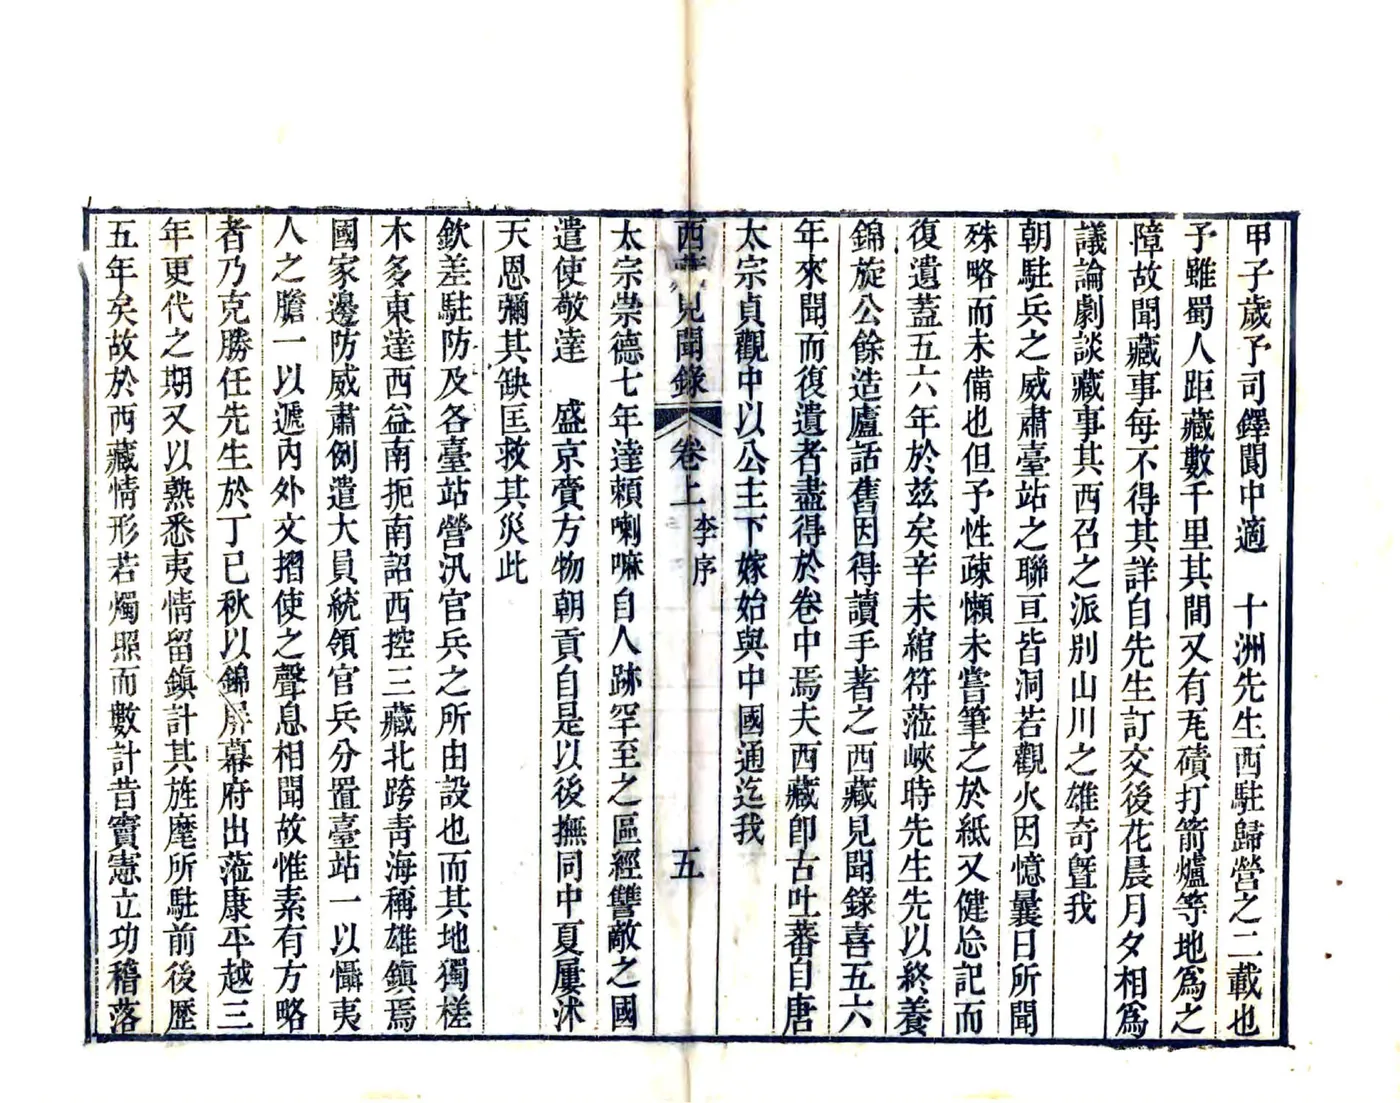 甲子歲予司鐸閬中適　十洲先生西駐歸營之二載也
予雖蜀人距藏數千里其間又有𡯁磧打箭爐等地爲之
障故聞藏事每不得其詳自先生訂交後花晨月夕相爲
議論劇談藏事其西召之派別山川之雄奇曁我
朝駐兵之威肅臺站之聯亘皆洞若觀火因憶曩日所聞
殊略而未備也但予性疎懶未嘗筆之於紙又健忘記而
復遺蓋五六年於兹矣辛未綰符蒞峽時先生先以終養
錦旋公餘造廬話舊因得讀手著之西藏見聞錄喜五六
年來聞而復遺者盡得於卷中焉夫西藏卽古吐蕃自唐
太宗貞觀中以公主下嫁始與中國通迄我
西藏見聞錄　卷上　李序　五
太宗崇德七年達賴喇嘛自人跡罕至之區經讐敵之國
遣使敬達　盛京賫方物朝貢自是以後撫同中夏屢沐
天恩彌其缺匡救其災此
欽差駐防及各臺站營汛官兵之所由設也而其地獨槎
木多東達西益南扼南詔西控三藏北跨靑海稱雄鎮焉
國家邊防威肅例遣大員統領官兵分置臺站一以懾夷
人之膽一以遞內外文摺使之聲息相聞故惟素有方略
者乃克勝任先生於丁巳秋以錦屏幕府出蒞康平越三
年更代之期又以熟悉夷情留鎮計其旌麾所駐前後歷
五年矣故於西藏情形若燭照而數計昔竇憲立功稽落